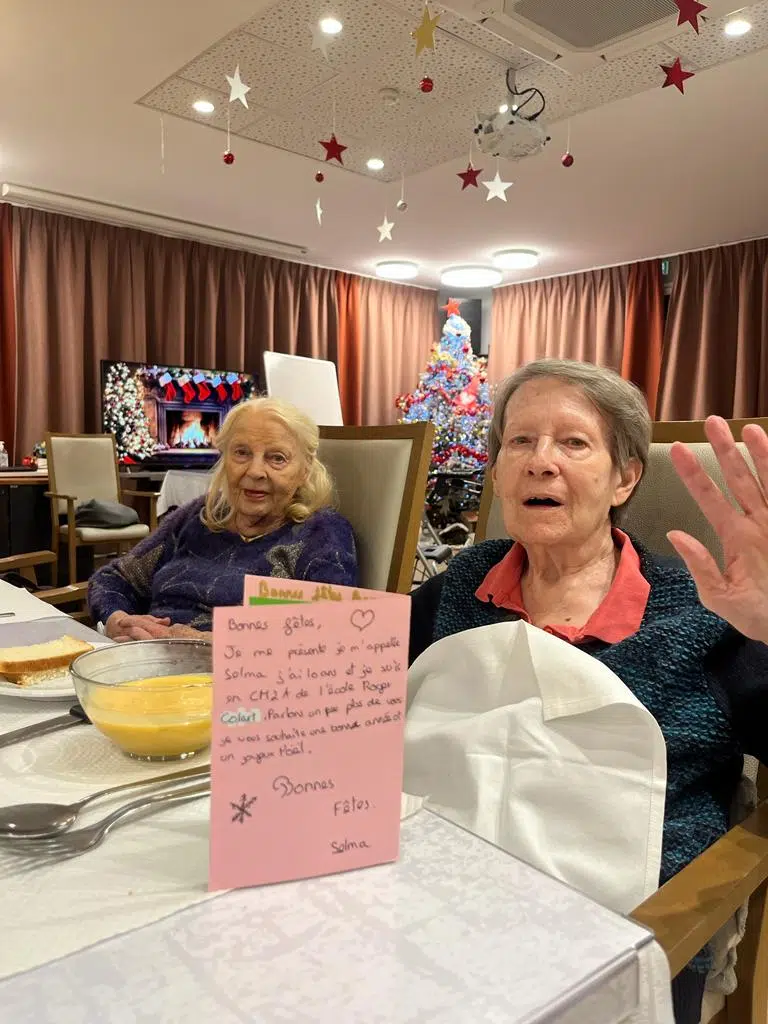 Bonnes fêtes
Bonnes fêtes,
Je me présente je m'appelle
Selma j'ai 10 ans et je suis
en CM2A de l'école Roger
Colart. Parlons un peu plus de vous
je vous souhaite une bonne année et
un joyeux Noël.
Bonnes
Fêtes.
Selma